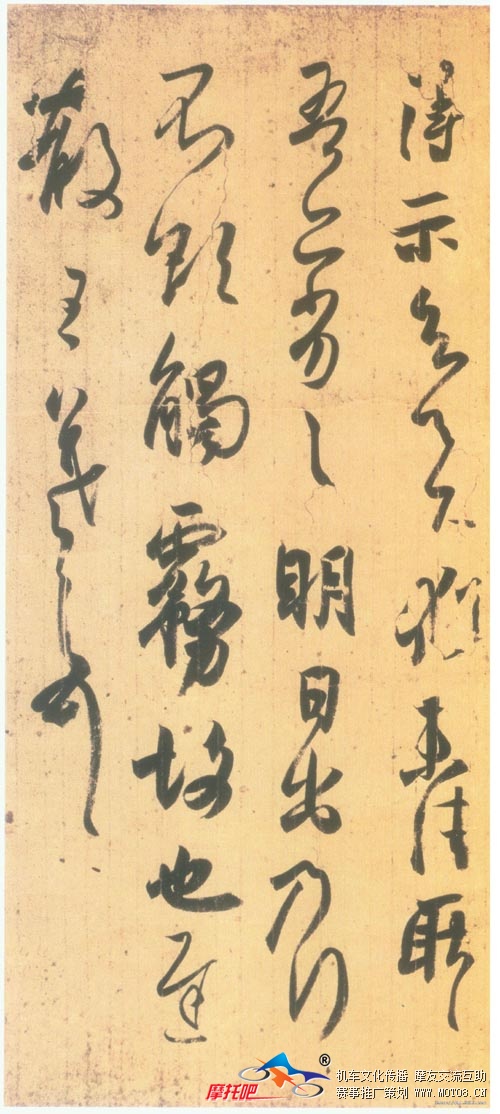 得示知足下猶未佳耿耿
吾亦劣劣明日出乃行
不欲觸霧故也遲
散王羲之頓首
摩托吧®
机车文化传播 摩友交流互助
赛事推广策划 www.MOTO8.cn